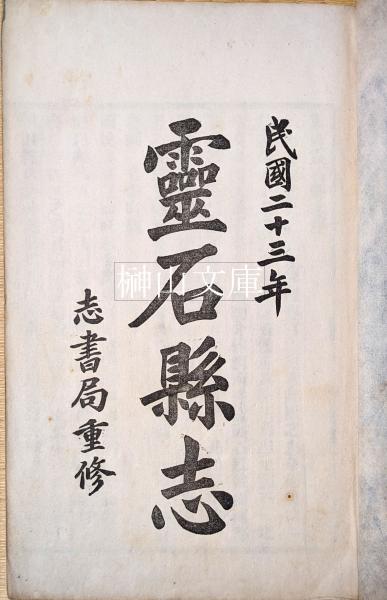 民國二十三年
靈石縣志
志書局重修
榊山文庫